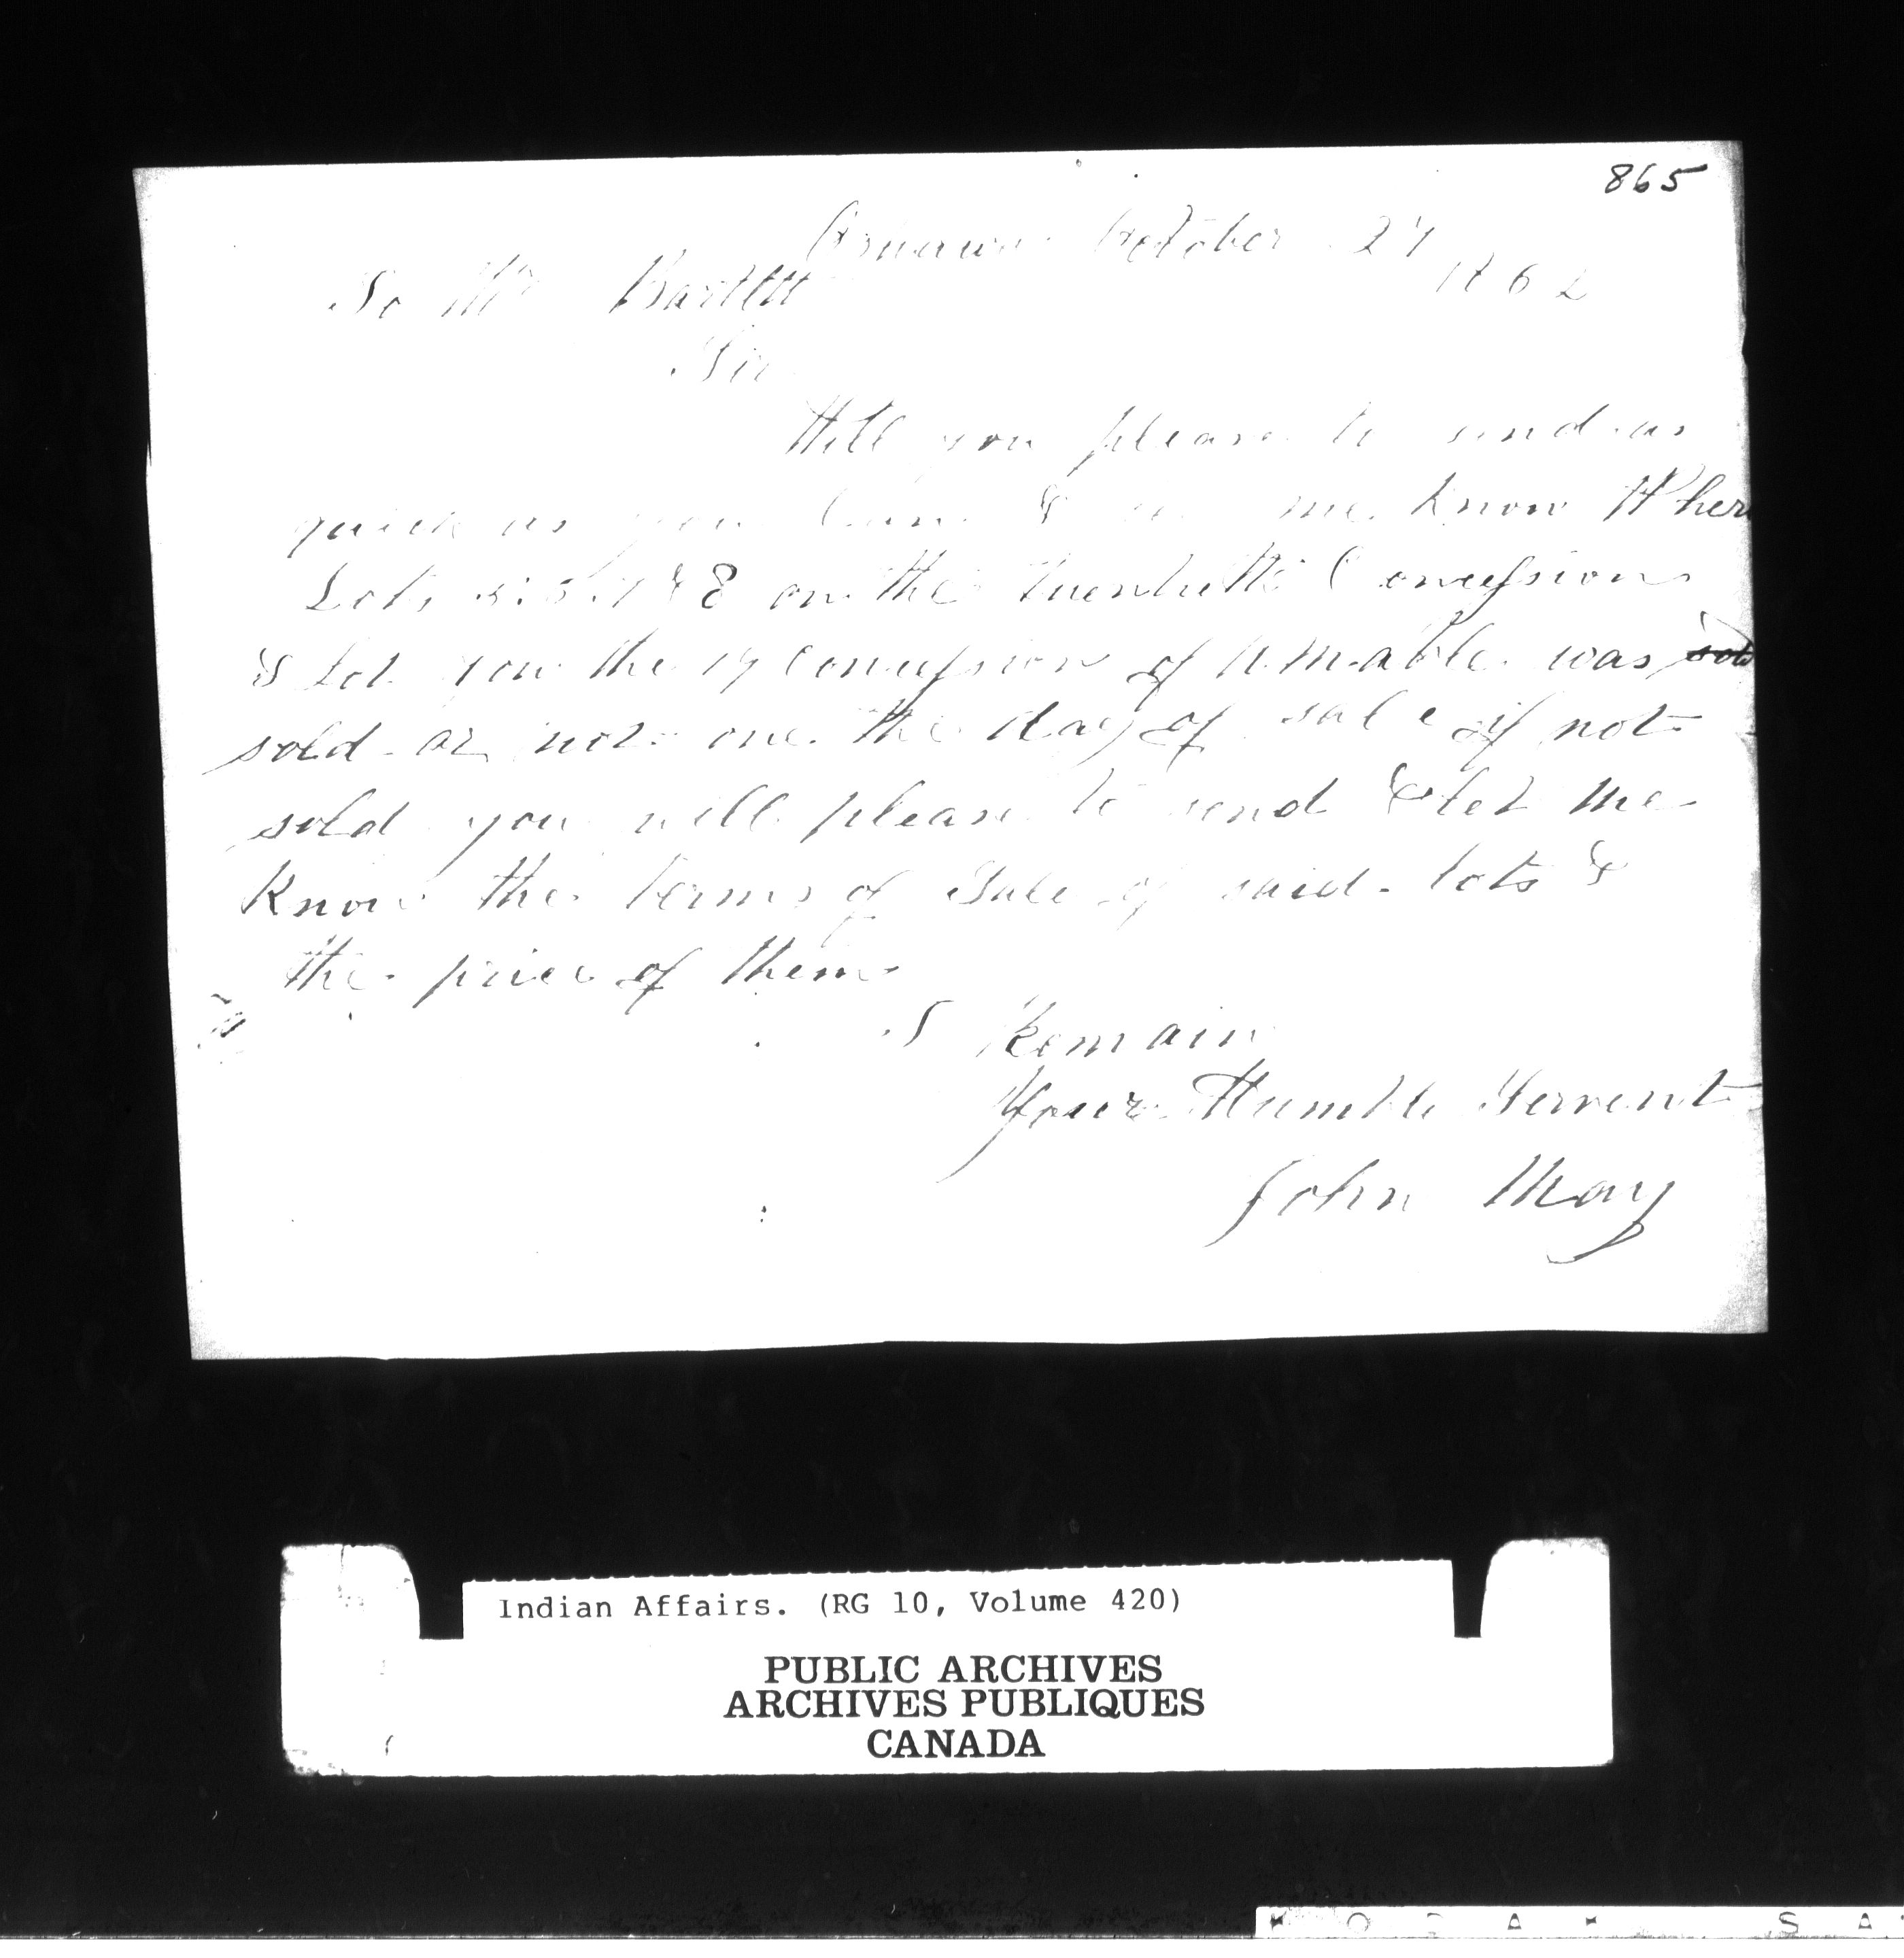 865
October 27 1862
To Mr Bartlett
Sir
Will you please to send as
quick as you Can & let me know Wher
Lots 5: 7 & 8 on the twentieth Concession
& Lot 7 on the 19 Concession of Amable was sold
sold or not one the day of sale if not
sold you will please to send & let me
Know the terms of Sale of said lots &
the price of them
I Remain
Your Humble Servent
John May
Indian Affairs. (RG 10, Volume 420)
PUBLIC ARCHIVES
ARCHIVES PUBLIQUES
CANADA